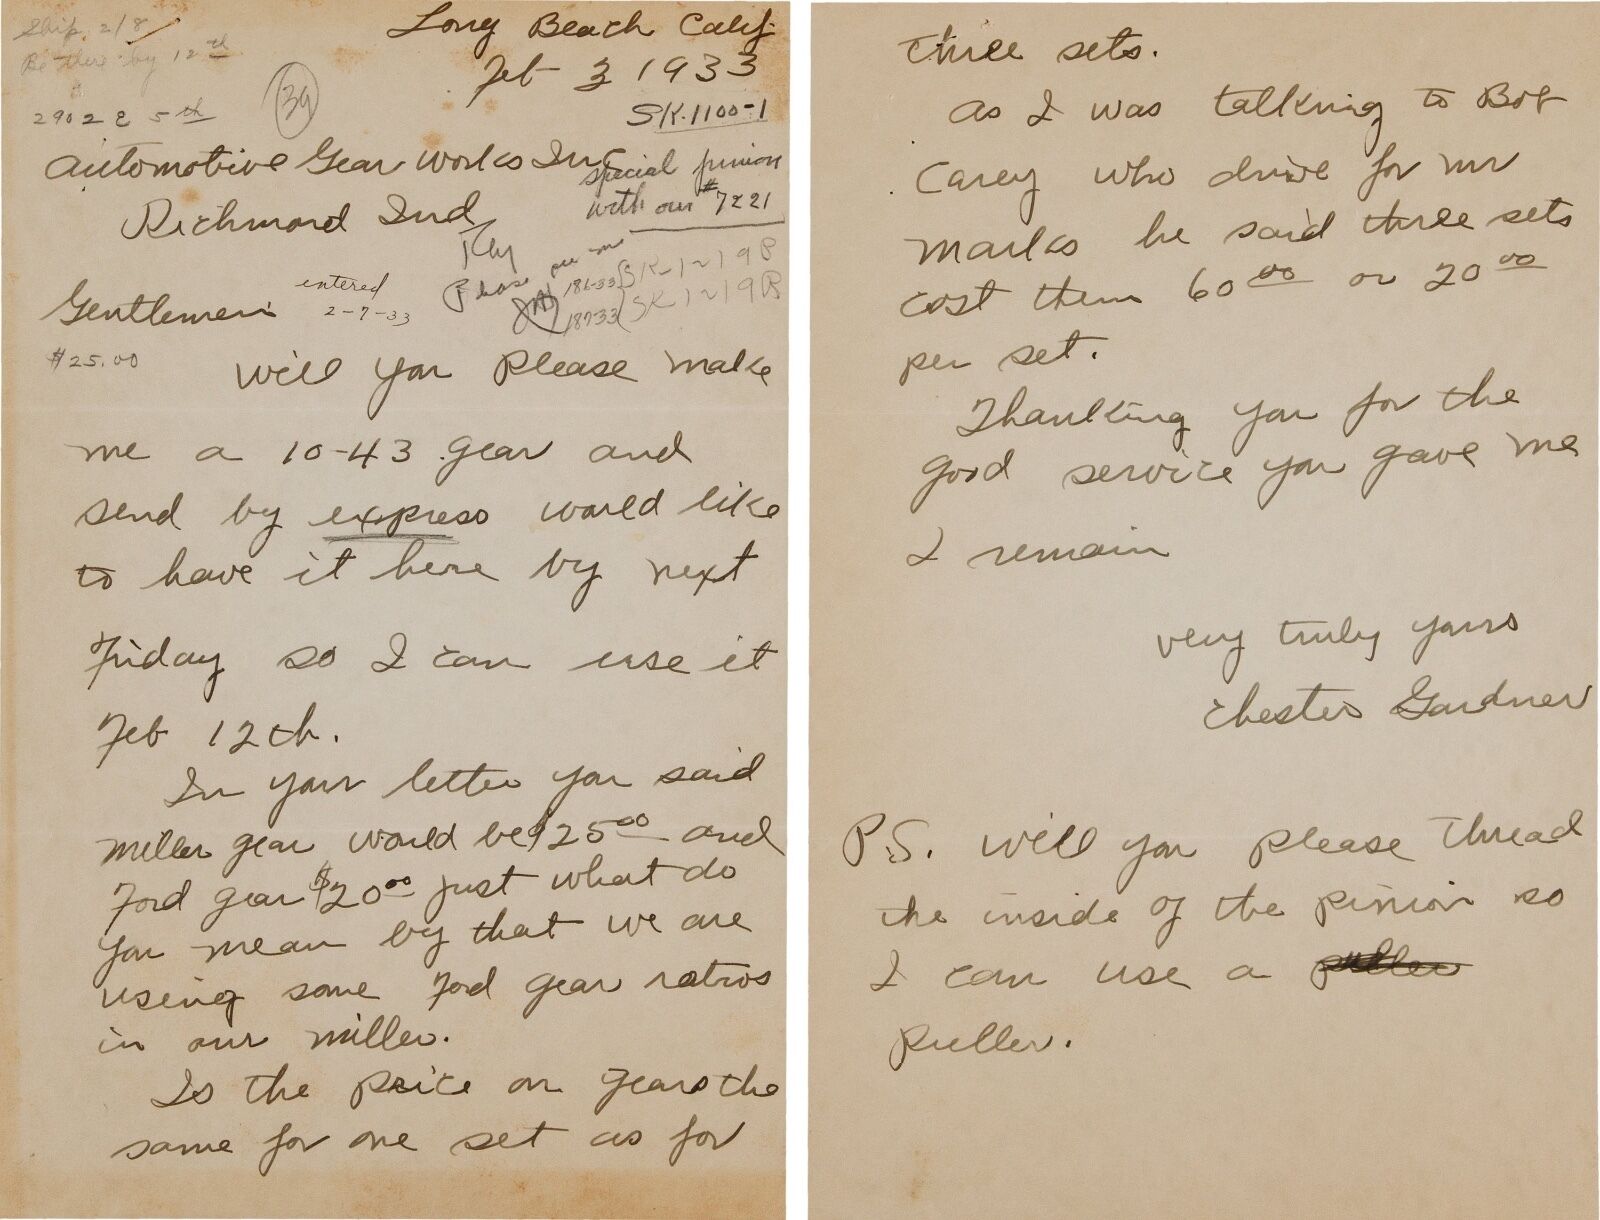 Ship 2/8
Be there by 12th
Long Beach Calif
Feb 3 1933
2902 E 5th
39
SK.1100-1
Automotive Gear Works Inc
special pinion
with our #7221
Richmond Ind
Ray
Please
186-33 (SK-1219P
187-33 (SK1219B
Gentlemen
entered
2-7-33
$25.00
will you please make
me a 10-43 gear and
send by express would like
to have it here by next
Friday so I can use it
Feb 12th.
In your letter you said
miller gear would be $25 00 and
Ford gear $20 00 just what do
you mean by that we are
using some Ford gear ratios
in our miller.
Is the price on gears the
same for one set as for
three sets.
As I was talking to Bob
Carey who drive for mr
Marks he said three sets
cost them 60 00 or 20 00
per set.
Thanking you for the
good service you gave me
I remain
very truly yours
Chester Gardner
P.S. will you please thread
the inside of the pinion so
I can use a puller
puller.